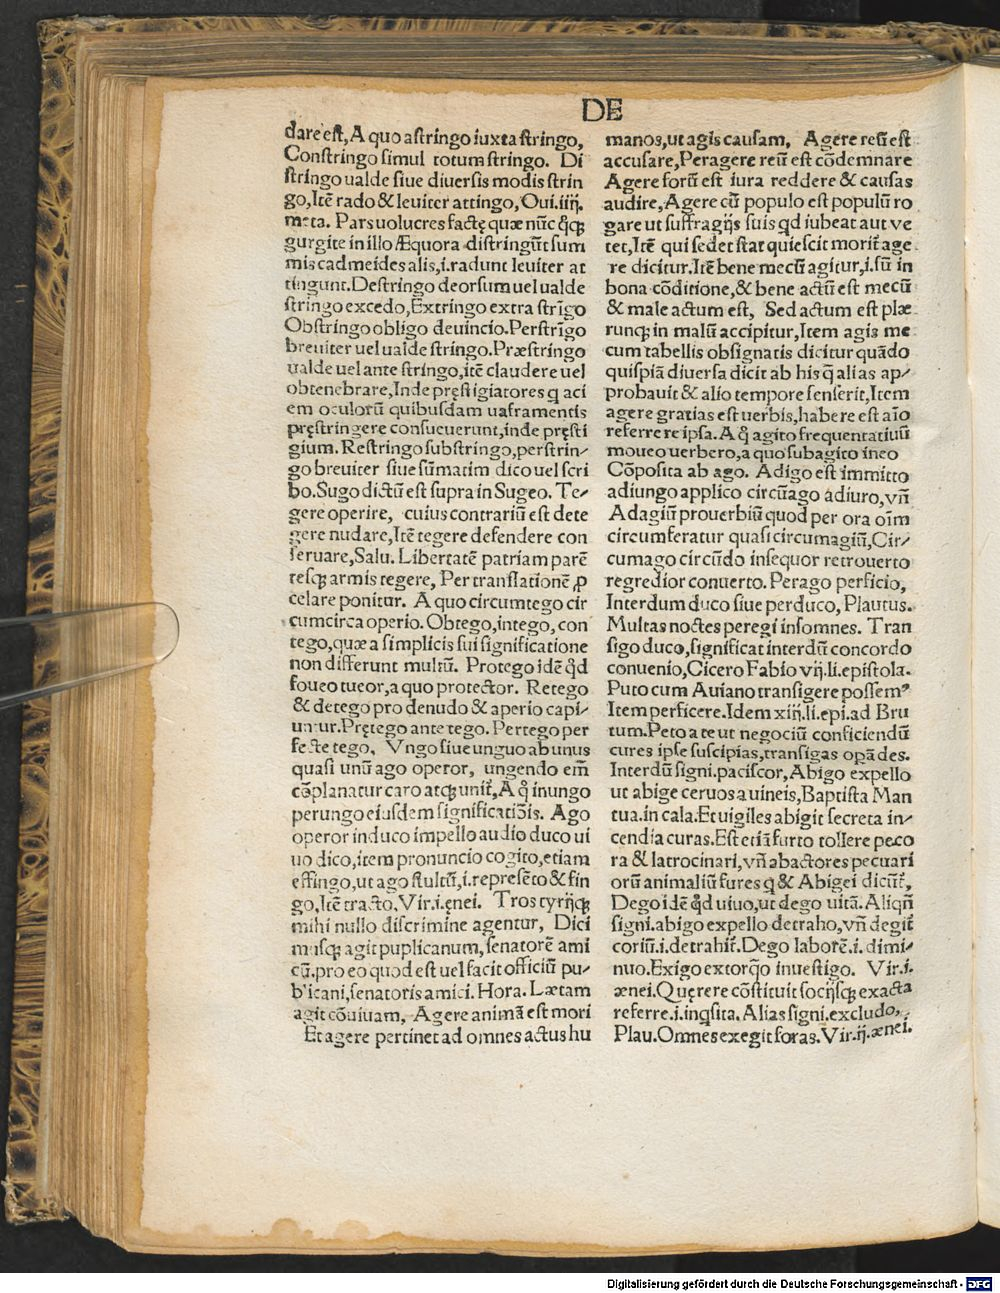 DE
dare est, A quo astringo iuxta stringo,
Constringo simul totum stringo. Di
stringo ualde siue diuersis modis strin
go, Itē rado & leuiter attingo, Oui. iiij.
meta. Pars uolucres factę quæ nūc q̊qꝫ
gurgite in illo Æquora distringūt sum
mis cadmeides alis, i. radunt leuiter at
tingunt. Destringo deorsum uel ualde
stringo excedo, Extringo extra strīgo
Obstringo obligo deuincio. Perstrīgo
breuiter uel ualde stringo. Præstringo
ualde uel ante stringo, itē claudere uel
obtenebrare, Inde pręstigiatores q aci
em oculorū quibusdam uaframentis
pręstringere consueuerunt, inde pręsti
gium. Restringo substringo, perstrin⸗
go breuiter siue sūmatim dico uel scri
bo. Sugo dictū est supra in Sugeo. Te⸗
gere operire, cuius contrariū est dete
gere nudare, Itē tegere defendere con
seruare, Salu. Libertatē patriam parē
tesqꝫ armis tegere, Per translationē ꝓ
celare ponitur. A quo circumtego cir
cumcirca operio. Obtego, intego, con
tego, quæ a simplicis sui significatione
non differunt multū. Protego idē q̊d
foueo tueor, a quo protector. Retego
& detego pro denudo & aperio capi⸗
untur. Prętego ante tego. Pertego per
fecte tego, Vngo siue unguo ab unus
quasi unū ago operor, ungendo em̄
cōplanatur caro atqꝫ unit̄, A q̊ inungo
perungo eiusdem significatiōis. Ago
operor induco impello audio duco ui
uo dico, item pronuncio cogito, etiam
effingo, ut ago stultū, i. represēto & fin
go, Itē tracto, Vir. i. ęnei. Tros tyrijqꝫ
mihi nullo discrimine agentur, Dici
musqꝫ agit puplicanum, senatorē ami
cū. pro eo quod est uel facit officiū pu⸗
blicani, senatoris amici. Hora. Lætam
agit cōuiuam, Agere animā est mori
Et agere pertinet ad omnes actus hu
manos, ut agis causam, Agere reū est
accusare, Peragere reū est cōdemnare
Agere forū est iura reddere & causas
audire, Agere cū populo est populū ro
gare ut suffragijs suis qd iubeat aut ve
tet, Itē qui sedet stat quiescit morit̄ age
re dicitur. Itē bene mecū agitur, i. sū in
bona cōditione, & bene actū est mecū
& male actum est, Sed actum est plæ
runqꝫ in malū accipitur, Item agis me
cum tabellis obsignatis dicitur quādo
quispiā diuersa dicit ab his q̄ alias ap⸗
probauit & alio tempore senserit, Item
agere gratias est uerbis, habere est aīo
referre re ipsa. A q̊ agito frequentatiuū
moueo uerbero, a quo subagito ineo
Cōposita ab ago. Adigo est immitto
adiungo applico circūago adiuro, vn̄
Adagiū prouerbiū quod per ora oīm
circumferatur quasi circumagiū, Cir⸗
cumago circūdo insequor retrouerto
regredior conuerto. Perago perficio,
Interdum duco siue perduco, Plautus.
Multas noctes peregi insomnes. Tran
sigo duco, significat interdū concordo
conuenio, Cicero Fabio vij. li. epistola.
Puto cum Auiano transigere possemꝰ
Item perficere. Idem xiij. li. epi. ad Bru
tum. Peto a te ut negociū conficiendū
cures ipse suscipias, transigas opā des.
Interdū signi. paciscor, Abigo expello
ut abige ceruos a uineis, Baptista Man
tua. in cala. Et uigiles abigit secreta in⸗
cendia curas. Est etiā furto tollere peco
ra & latrocinari, vn̄ abactores pecuari
orū animaliū fures q̄ & Abigei dicūt̄,
Dego idē q̊d uiuo, ut dego uitā. Aliqn̄
signi. abigo expello detraho, vn̄ degit̄
coriū. i. detrahit̄. Dego laborē. i. dimi⸗
nuo. Exigo extorq̄o inuestigo. Vir. i.
ænei. Quęrere cōstituit socijsqꝫ exacta
referre. i. inq̄sita. Alias signi. excludo,
Plau. Omnes exegit foras. Vir. ij. ænei.
Digitalisierung gefördert durch die Deutsche Forschungsgemeinschaft - DFG